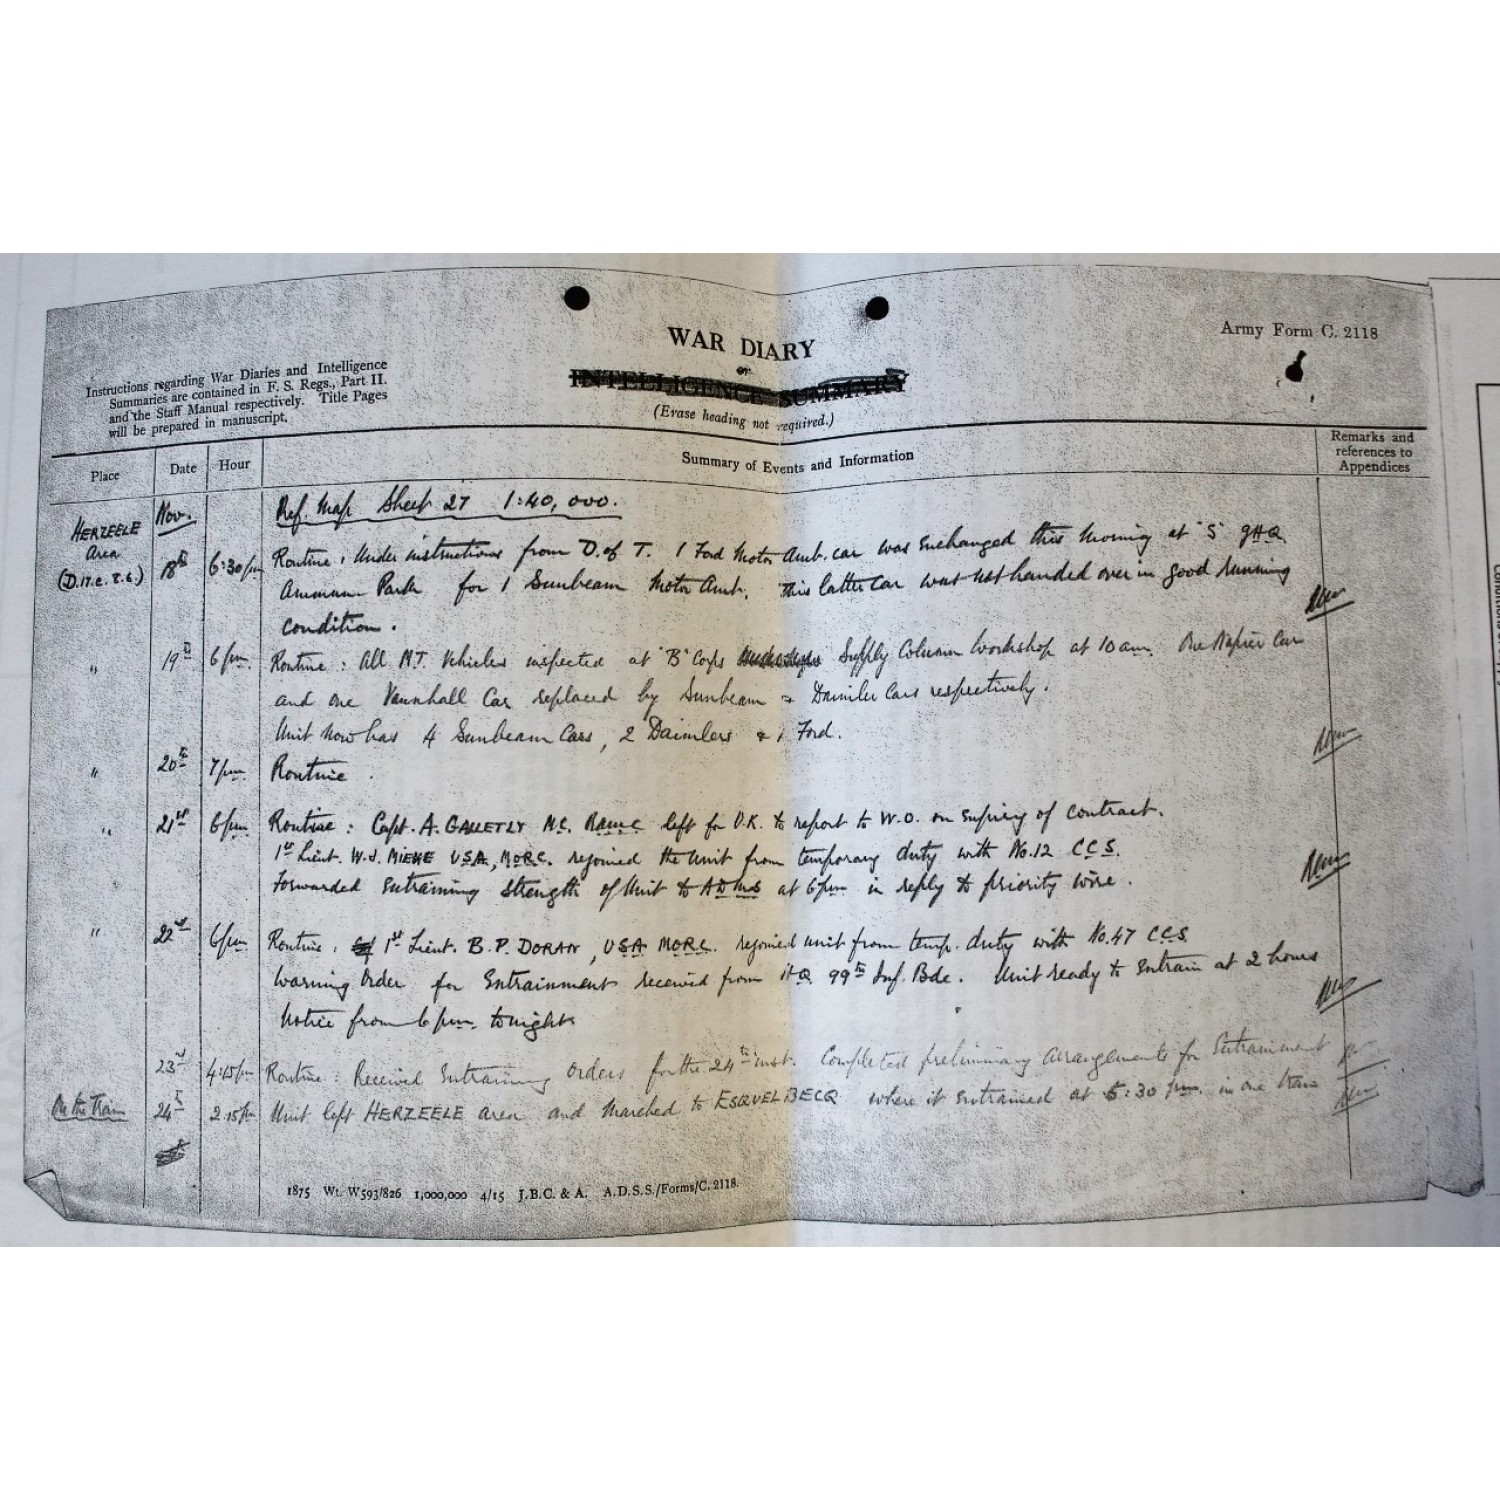 Army Form C. 2118
WAR DIARY
or
INTELLIGENCE SUMMARY
(Erase heading not required.)
Instructions regarding War Diaries and Intelligence
Summaries are contained in F. S. Regs., Part II.
and the Staff Manual respectively. Title Pages
will be prepared in manuscript.
Place Date Hour Summary of Events and Information Remarks and references to Appendices
Nov. Ref. Map Sheet 27 1:40,000.
HERZEELE Area (D.17.c.8.6.) 18th 6:30pm Routine: Under instructions from D. of T. 1 Ford Motor Amb. car was exchanged this morning at "S" GHQ
Ammun Park for 1 Sunbeam Motor Amb. This latter car was not handed over in good running
condition.
" 19th 6pm Routine: All M.T. Vehicles inspected at "B" Corps Supply Column Workshop at 10am. One Napier Car
and one Vauxhall Car replaced by Sunbeam & Daimler Cars respectively.
Unit now has 4 Sunbeam Cars, 2 Daimlers & 1 Ford.
" 20th 7pm Routine.
" 21st 6pm Routine: Capt. A. GALLETLY M.C. RAMC left for U.K. to report to W.O. on expiry of contract.
1st Lieut. W.J. MIEHE USA, MORC. rejoined the unit from temporary duty with No.12 CCS.
Forwarded entraining strength of Unit to ADMS at 6pm in reply to priority wire.
" 22nd 6pm Routine: 1st Lieut. B.P. DORAN, USA MORC. rejoined unit from temp. duty with No.47 CCS.
Warning Order for Entrainment received from HQ 99th Inf. Bde. Unit ready to entrain at 2 hours
notice from 6 pm. tonight
23rd 4:15pm Routine: Received Entraining Orders for the 24th inst. Completed preliminary arrangements for Entrainment
On the Train 24th 2.15pm Unit left HERZEELE area and marched to ESQUELBECQ where it entrained at 5:30 pm. in one train
1875 Wt. W593/826 1,000,000 4/15 J.B.C. & A. A.D.S.S./Forms/C. 2118.